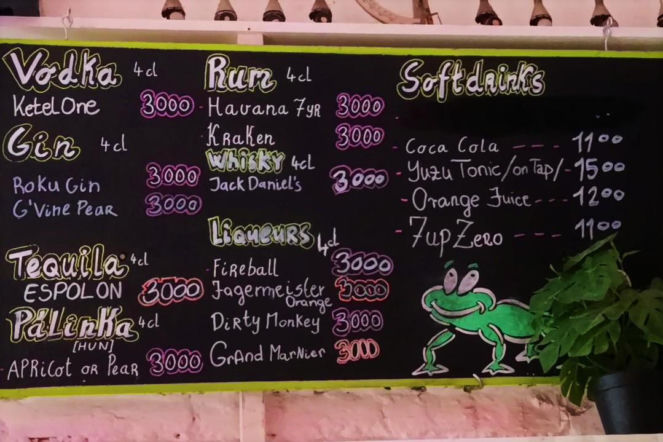 Vodka 4cl
Ketel One 3000
Gin 4cl
Roku Gin 3000
G'Vine Pear 3000
Tequila 4cl
ESPOLON 3000
Pálinka 4cl
[HUN]
APRicot OR PEAR 3000
Rum 4cl
Havana 7YR 3000
Kraken 3000
Whisky 4cl
Jack Daniel's 3000
Liqueurs 4cl
Fireball 3000
Jagermeister 3000
Orange
Dirty Monkey 3000
Grand Marnier 3000
Softdrinks
- Coca Cola --- 1100
- Yuzu Tonic/on Tap/- 1500
- Orange Juice --- 1200
- 7up Zero -- 1100